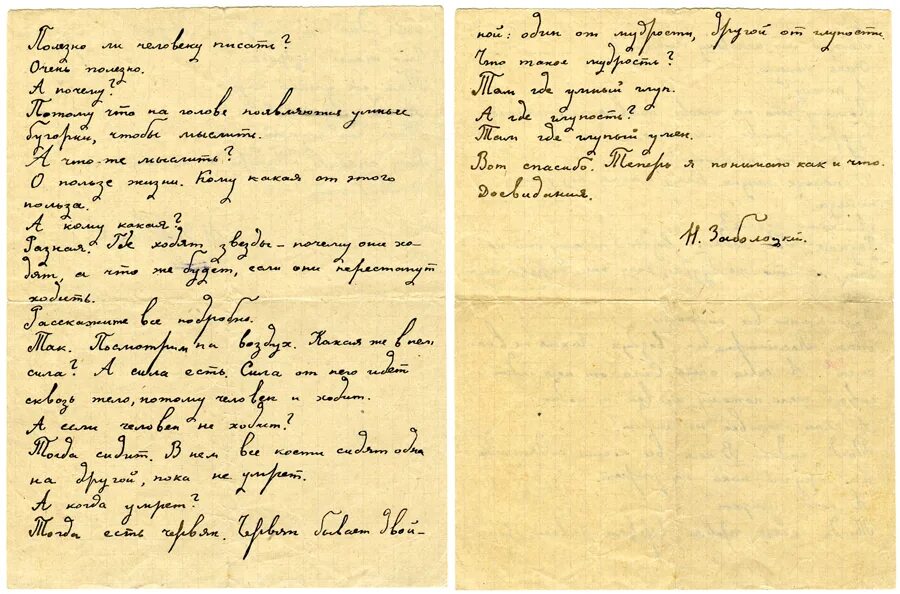 Полезно ли человеку писать?
Очень полезно.
А почему?
Потому что на голове появляются умные
бугорки, чтобы мыслить.
А что же мыслить?
О пользе жизни. Кому какая от этого
польза.
А кому какая?
Разная. Где ходят звезды – почему они хо-
дят, а что же будет, если они перестанут
ходить.
Расскажите все подробно.
Так. Посмотрим на воздух. Какая же в нем
сила? А сила есть. Сила от него идет
сквозь тело, потому человек и ходит.
А если человек не ходит?
Тогда сидит. В нем все кости сидят одна
на другой, пока не умрет.
А когда умрет?
Тогда есть червяк. Червяк бывает двой-
ной: один от мудрости, другой от глупости.
Что такое мудрость?
Там где умный глуп.
А где глупость?
Там где глупый умен.
Вот спасибо. Теперь я понимаю как и что.
Досвидания.
Н. Заболоцкий.